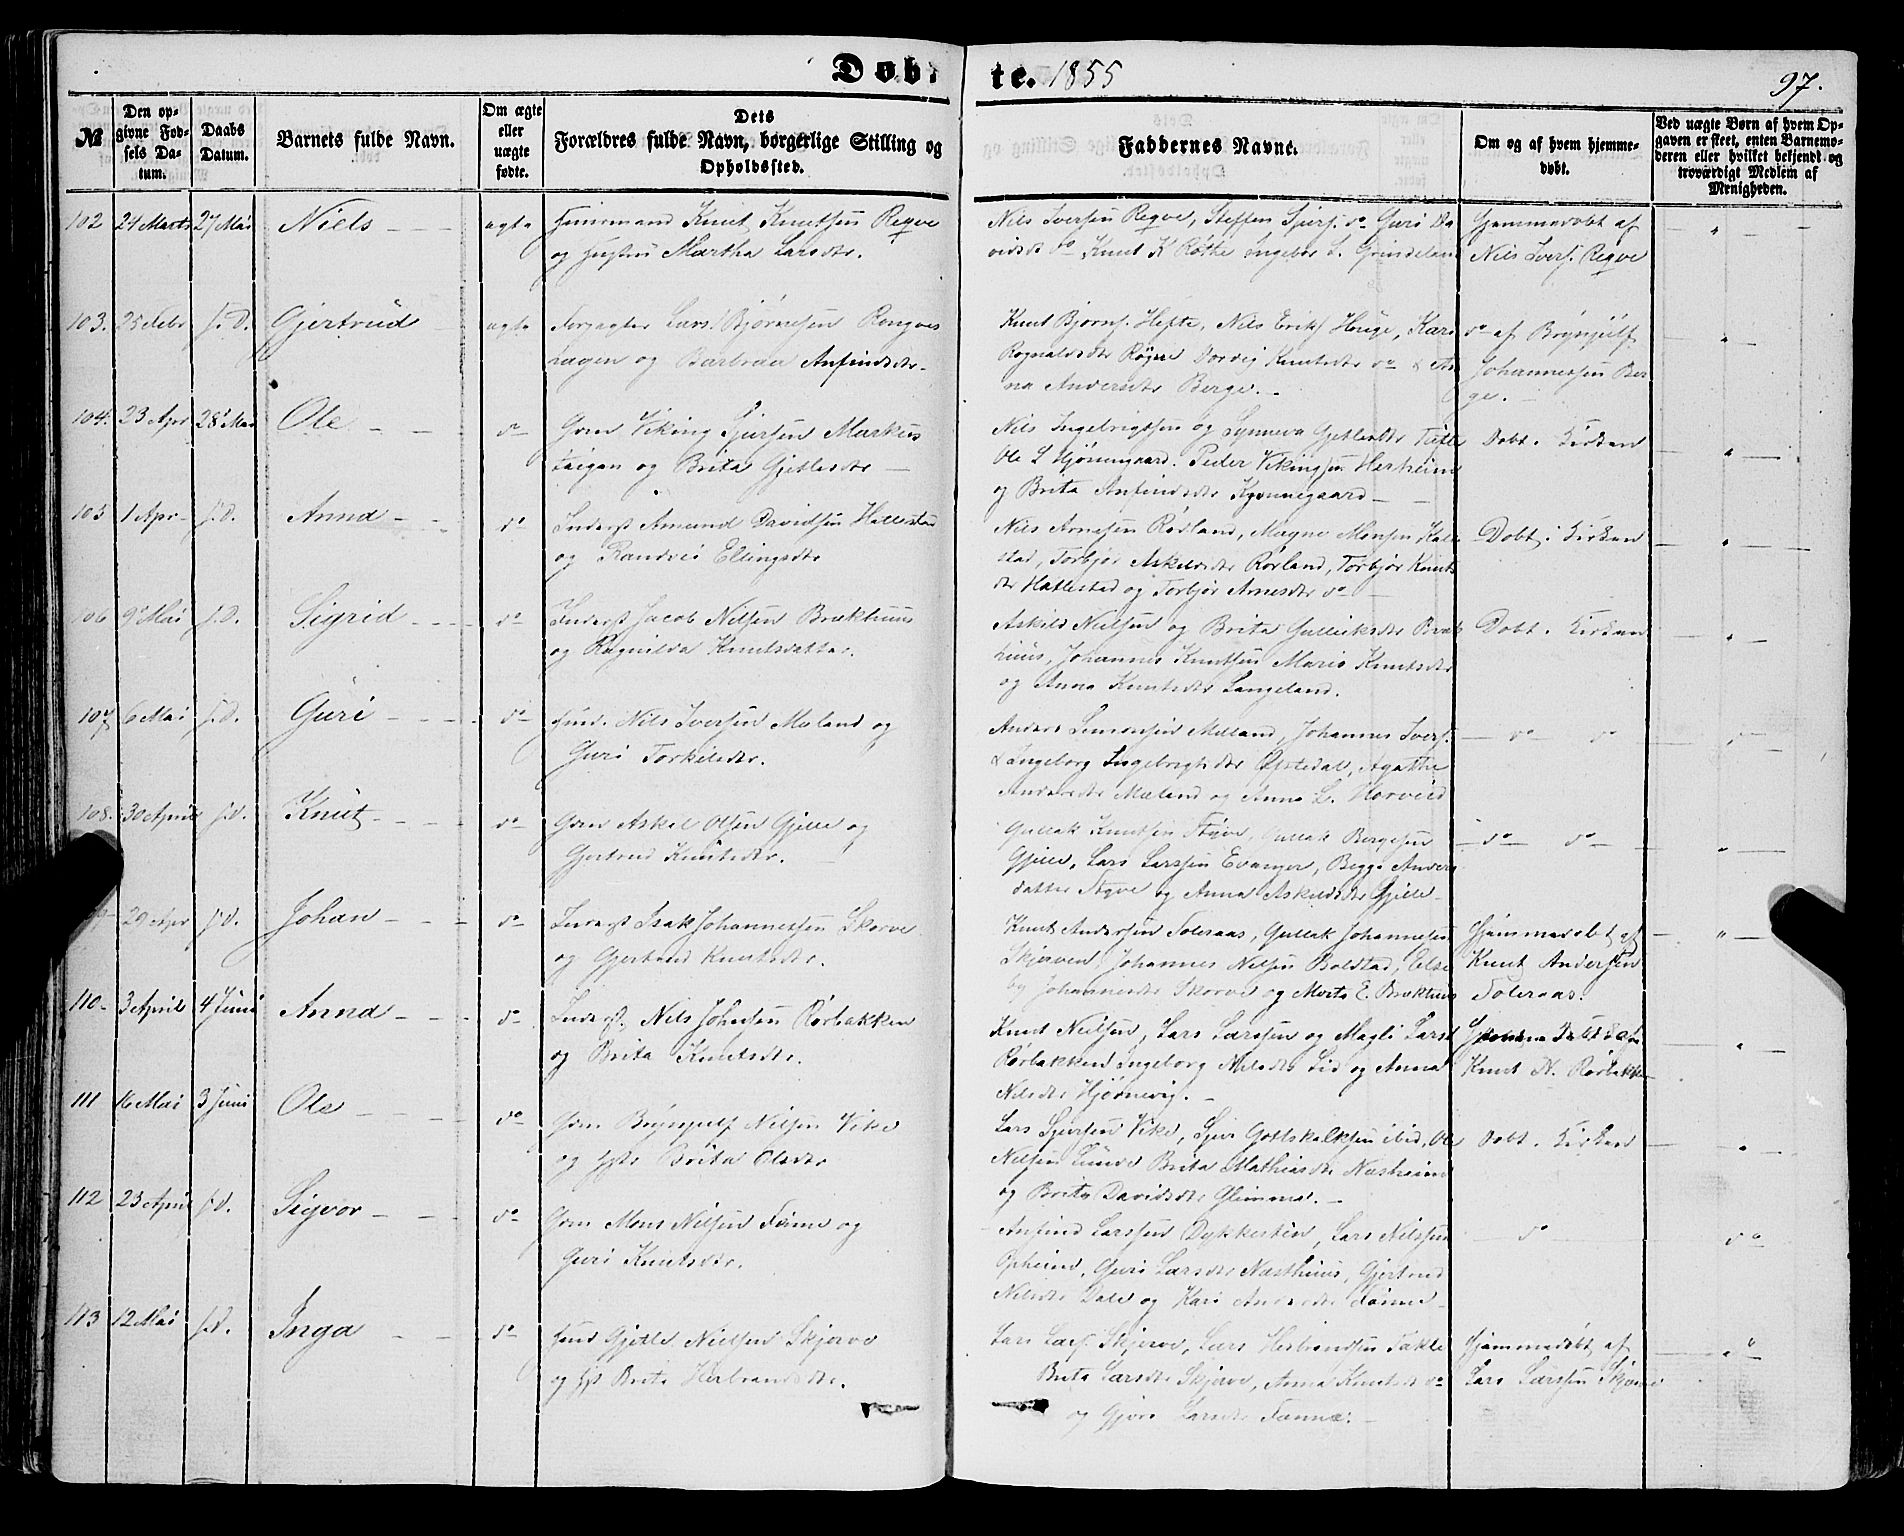 Døbte. 1855
97.
№
Den opgivne Fødsels Datum.
Daabs Datum.
Barnets fulde Navn.
Om ægte eller uægte fødte.
Dets Forældres fulde Navn, borgerlige Stilling og Opholdssted.
Faddernes Navne.
Om og af hvem hjemmedøbt.
Ved uægte Børn af hvem Opgaven er skeet, enten Barnemoderen eller hvilket bekjendt og troværdigt Medlem af Menigheden.
102 24 Marts 27 Mai Niels ægte Huusmand Knut Knutsen Reqve
og Hustru Martha Larsdtr.
Nils Iversen Reqve, Steffen Sjurs. do Guri Da
vidsdt do Knut K Røthe Ingebor L. Grindeland
Hjemmedøbt af
Nils Ivers. Reqve
103. 25 Febr s.D. Gjertrud ægte Forpagter Lars Bjørnesen Rongves
hagen og Barbraa Anfindsdtr.
Knut Bjørns. Hefte, Nils Eriks Houge, Kari
Rognaldsdtr Røgve Dordei Knutsdtr do & An
na Andersdtr Berge.
do af Brynjulf
Johannessen Ber
ge.
104. 23 Apr 28 Mai Ole do Grm Viking Sjursen Markus
teigen og Brita Gjetlesdtr
Nils Ingebrigtsen og Synneva Gjetlesdtr
Ole L Hjønnegaard. Peder Vikingsen Herheim
og Brita Anfindsdtr Kjønnegaard
Døbt i Kirken
105 1 Apr s.D. Anna do Inderst Amund Davidsen Hallestad
og Randvei Ellingsdtr
Nils Arnesen Rørland, Magne Monsen Hale
stad, Torbjør Askildsdtr Rørland, Torbjør Knuts
dtr Hallestad og Torbjør Arnesdtr do
Døbt i Kirken
106 9 Mai s.D. Sigrid do Inderst Jacob Nilsen Brækhuus
og Ragnilda Knutsdatter.
Askild Nielsen og Brita Gulleiksdtr Bræk
huus, Johannes Knutsen Mario Knutsdtr
og Anna Knutsdtr Langeland.
Døbt i Kirken
107 6 Mai s.D. Guri do Huusd. Nils Iversen Mæland og
Guri Torkilsdtr.
Anders Simonsen Melland, Johannes Ivers.
& Ingeborg Ingebrigtsdtr Opstedal, Agatha
Andersdtr Mæland og Anna L. Horveid
do do do
108. 30 April s.d. Knut do Grm Askel Olsen Gjelle og
Gjertrud Knutsdtr.
Gullak Knutsen Styve, Gullak Bergesen
Gjelle, Lars Larssen Evanger, Begga Anders
datter Styve og Anna Askildsdtr Gjelle
do do
29 Apr s.d. Johan do Inderst Isak Johannessen Skorve
og Gjertrud Knutsdtr.
Knut Andersen Toleraas, Gullak Johannesen
Skjerven, Johannes Nilsen Bolstad, Else
by Johannesdtr Skorve og Marta E. Brækhuus
Hjemmedøbt af
Knut Andersen
Toleraas.
110 3 April 4 Juni Anna do Inderst. Nils Johnsen Rørbakken
og Brita Knutsdtr.
Knut Nielsen, Lars Larssen og Magli Larsd
Rørbakken Ingeborg Nilsdtr Lid og Anna
Nilsdtr Hjørnevig.
Knut N. Rørbakken
111 16 Mai 3 Juni Ole do Grm Brynjulf Nilsen Vike
og Hstr Brita Olsdtr
Lars Sjursen Vike, Sjur Gottskalksen ibid, Ole
Nilsen Lunde Brita Mathiasdtr Næsheim
og Brita Davidsdtr Glimme.
Døbt i Kirken
112 23 April s.d. Sigvor do Grm Mons Nilsen Fenne og
Guri Knutsdtr.
Anfind Larssen Dykkesten, Lars Nilssen
Opheim, Guri Larsdtr Næsthuus, Gjertrud
Nilsdtr Dale og Kari Andersdtr Fenne
do do
113 12 Mai s.d. Inga do Huusd Gjetle Nielsen Skjerve
og Hst Brita Herbrandsdtr.
Lars Lars. Skjerve, Lars Herbrandsen Takle
Brita Larsdtr Skjerve, Anna Knutsdtr do
og Gjøro Larsdtr Fenne.
Hjemmedøbt af
Lars Larssen Skjerve